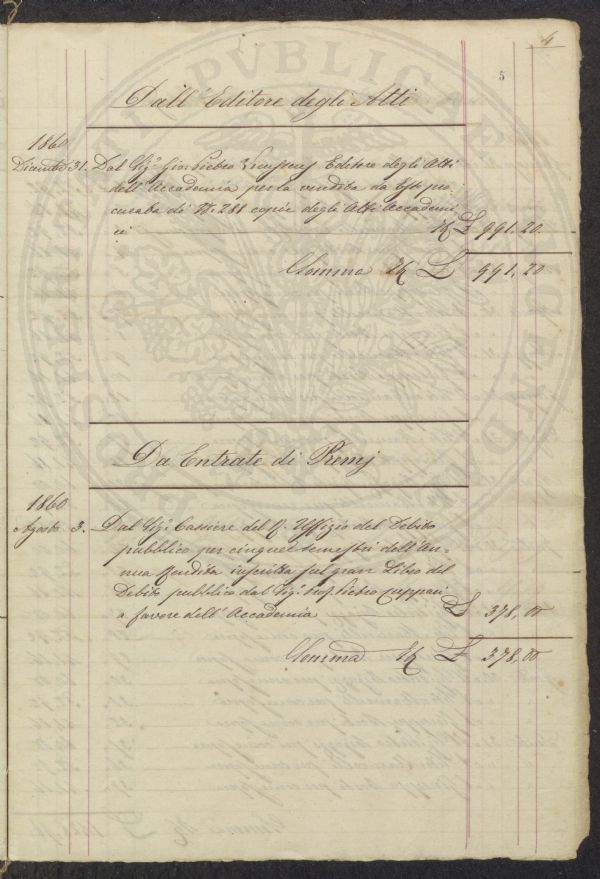 4
5
Dall' Editore degli Atti
1860
Dicembre 31. Dal Sig.r Gio. Pietro Vieusseux Editore degli Atti
dell' Accademia per la vendita da Esso pro-
curata di N. 288 copie degli Atti Accademi-
ci £ 991.20.
Somma £ 991,20
Da Entrate di Premj
1860
Agosto 3. Dal Sig.r Cassiere del R. Uffizio del Debito
pubblico per cinque semestri dell' An-
nua Rendita inscritta sul gran Libro del
Debito pubblico dal Sig.r Pietro
a favore dell' Accademia £ 378,00
Somma £ 378,00